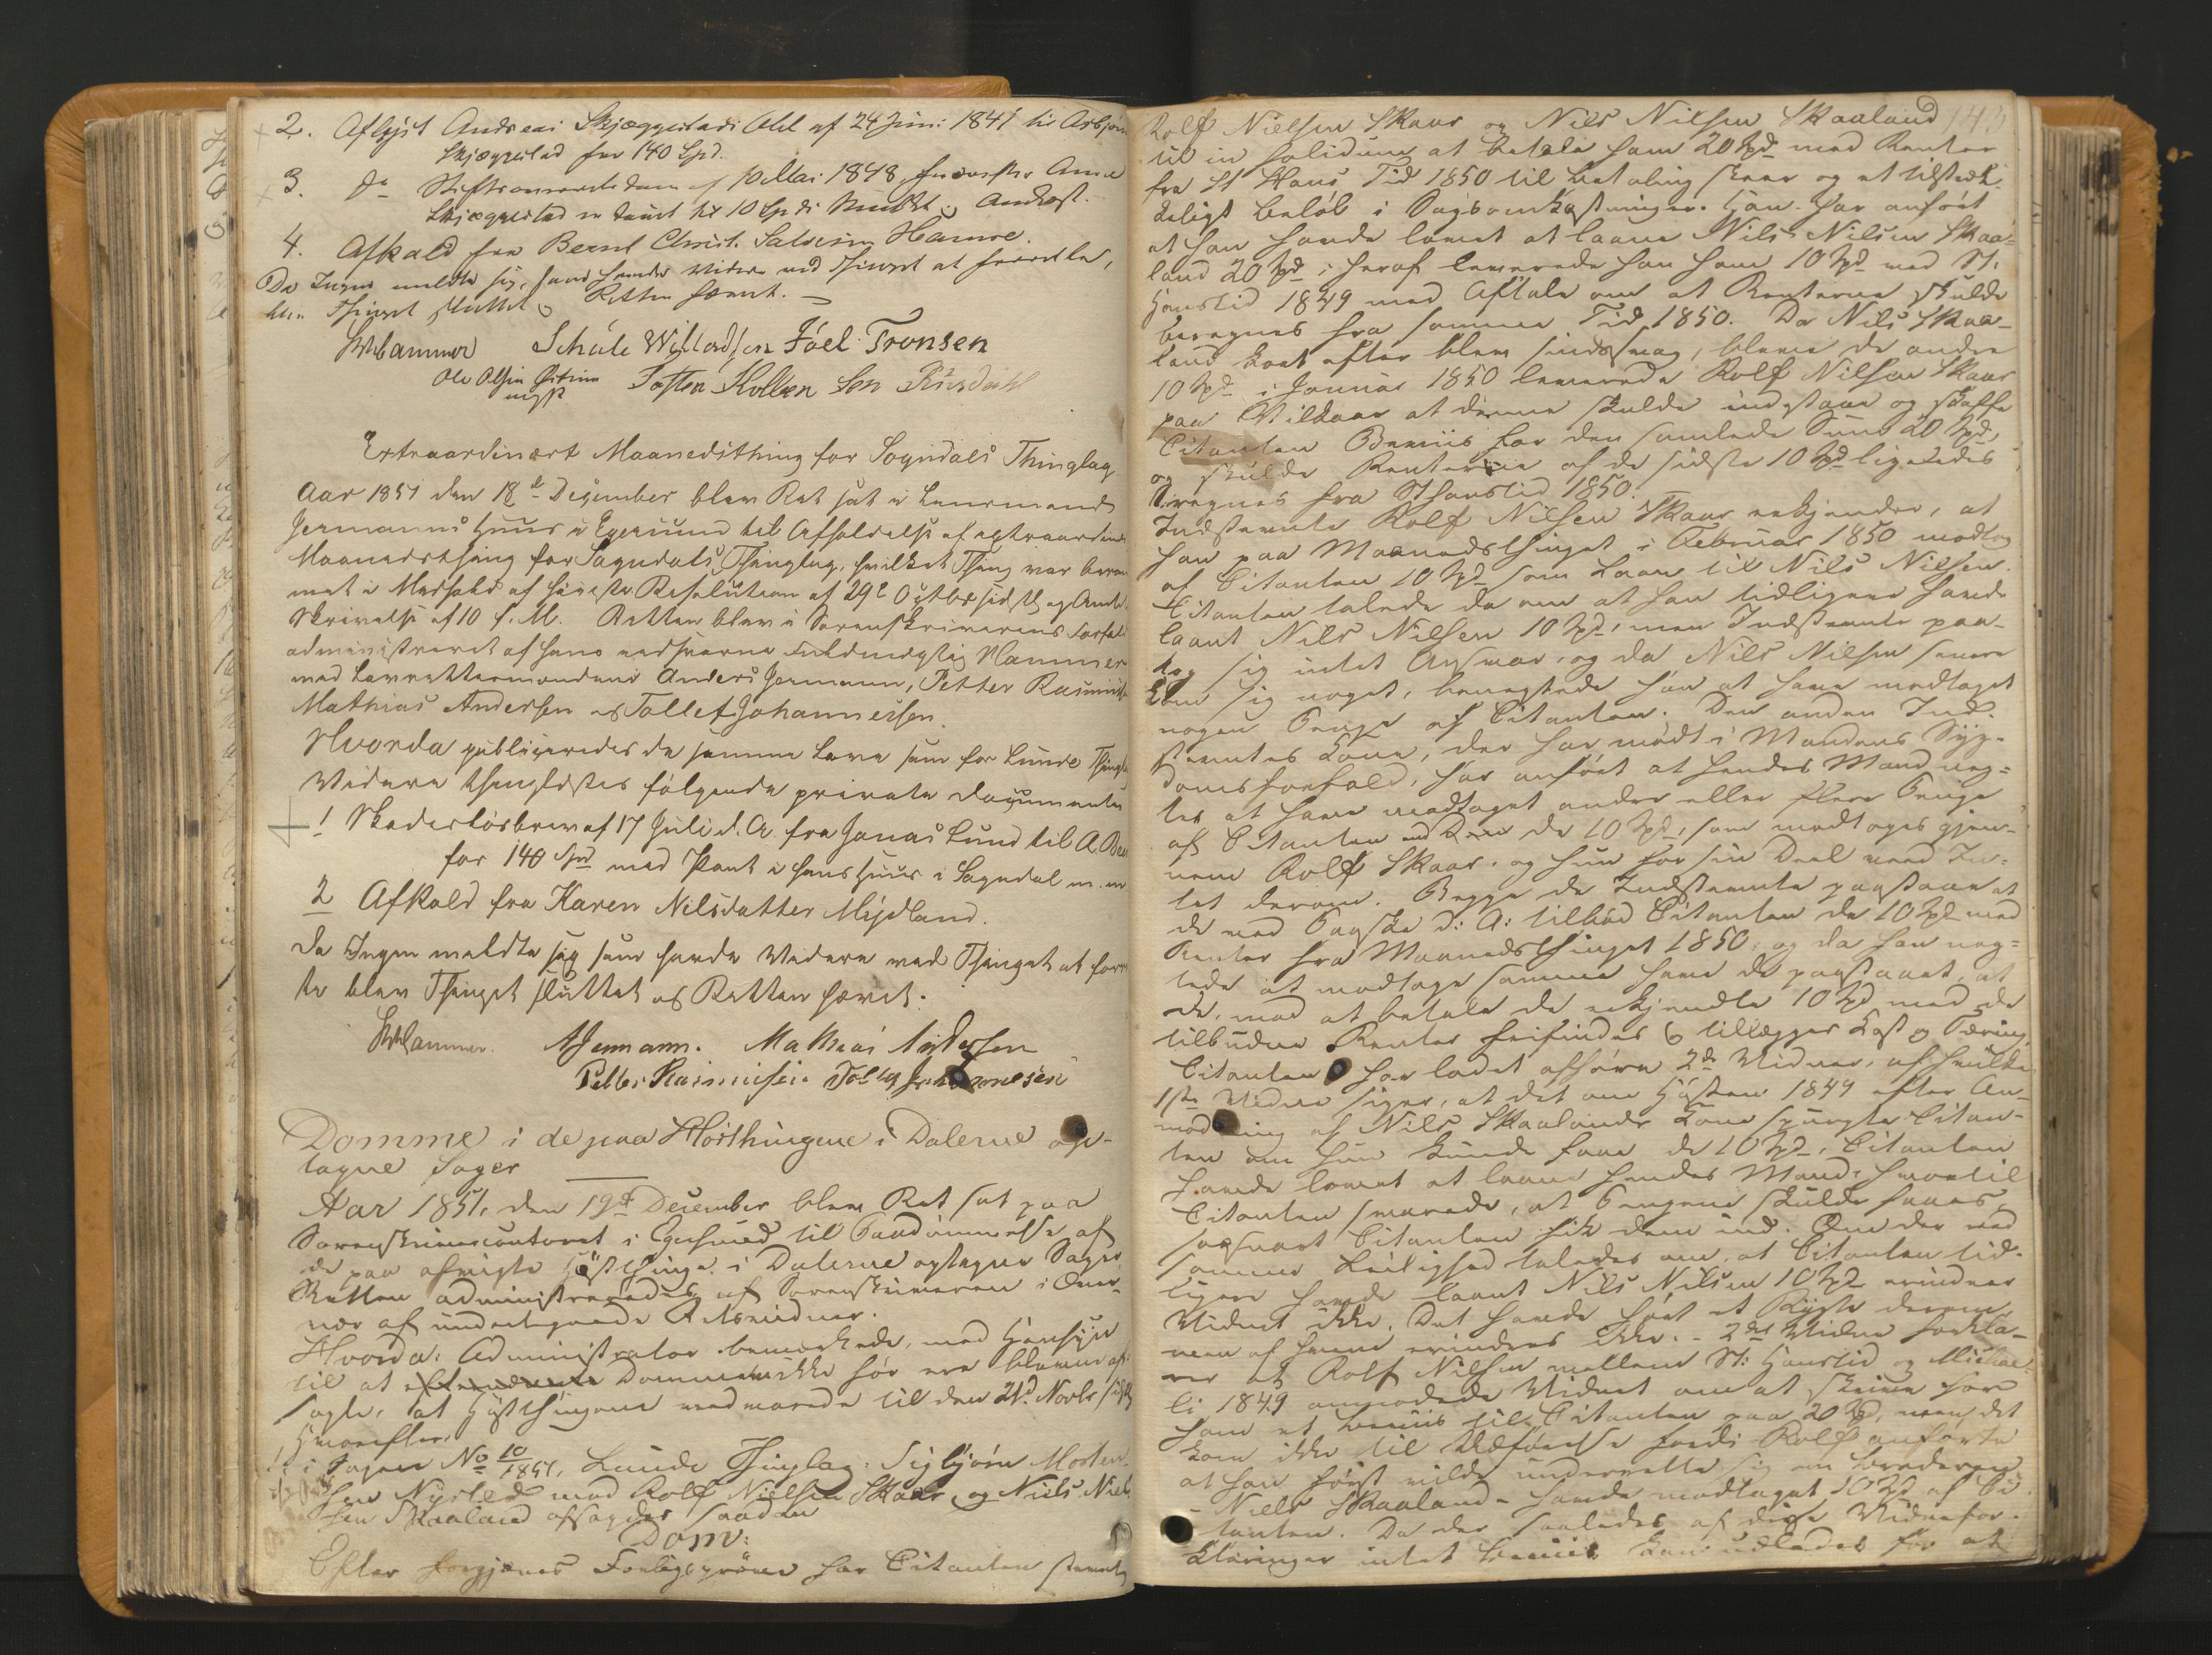 2. Aflyst Andreas Skjæggestads Obl af 24 Juni 1841 til Asbjørn
Skjæggestad for 140 Spd.
3. do Stiftsoverretsdom af 10 Mai 1848, hvorefter Anne
Skjæggestad er dømt til 10 Spds Mulkt
4. Afkald fra Bernt Christ. Salvesen Hamre.
Da Ingen meldte sig, som havde Videre ved Thinget at forrette,
blev Thinget sluttet og Retten hævet.
WHammer Schule Willadssen Joel Tronsen
Ole Olsen
Tosten Sen
Extraordinært Maanedsthing for Sogndals Thinglag.
Aar 1851 den 18de December blev Ret sat i Lensmand
Jermanns Huus i Egersund til Afholdelse af extraordinært
Maanedsthing for Sogndals Thinglag, hvilket Thing var beram
met i Medhold af høieste Resolution af 29de Octbr sidstl og Amts
Skrivelse af 10 f. M. Retten blev i Sorenskriverens Forfald
administreret af hans edsvorne Fuldmægtig Hammer
med Lavrettesmændene Anders Jermann, Petter Rasmuss
Mathias Andersen og Tollef Johannessen.
Hvorda publiceredes de samme Love som for Lunde Thingl
Videre thinglystes følgende private Documenter
1 Skadesløsbrev af 17 Juli d. A. fra Jonas Lund til A.
for 140 Spd med Pant i hans Huus i Sogndal m. m
2 Afkald fra Karen Nilsdatter Mydland.
Da Ingen meldte sig som havde Videre ved Thinget at forret
te blev Thinget sluttet og Retten hævet.
WHammer. AJermann. Mathias Andersen
Petter Rasmussen Tolleg Johannesen
Domme i de paa Høstthingene i Dalerne op-
tagne Sager
Aar 1851, den 19de December blev Ret sat paa
Sorenskrivercontoret i Egersund til Paadømmelse af
de paa afvigte Høstthinge i Dalerne optagne Sager
Retten administreredes af Sorenskriveren i Over-
vær af undertegnede Retsvidner.
Hvorda: Administrator bemærkede, med Hensyn
til at Dommene ikke før ere blevne af-
sagte, at Høstthingene vedvarede til den 21d Novbr sidstl
Hvorefter:
i Sagen No 10/1851, Lunde Thinglag: Sigbjørn Morten
sen Nysted mod Rolf Nielsen Skaar og Niels Niel
sen Skaaland afsagdes saadan
Dom:
Efter forgjæves Forligsprøve har Citanten stevnet
143
Rolf Nielsen Skaar og Nils Nilsen Skaaland
til in solidum at betale ham 20 Spd med Renter
fra St Hans Tid 1850 til Betaling skeer og et tilstræk-
keligt Beløb i Sagsomkostninger. Han har anført
at han havde lovet at laane Nils Nilsen Skaa-
land 20 Spd; heraf leverede han ham 10 Spd ved St.
Hanstid 1849 med Aftale om at Renterne skulde
beregnes fra samme Tid 1850. Da Nils Skaa-
land kort efter blev sindssvag, bleve de andre
10 Spd i Januar 1850 leverede Rolf Nilsen Skaar
paa Vilkaar at denne skulde indestaae og skaffe
Citanten Beviis for den samlede Sum 20 Spd,
og skulde Renterne af de sidste 10 Spd ligeledes
beregnes fra St Hanstid 1850.
Indstevnte Rolf Nilsen Skaar erkjender, at
han paa Maanedsthinget i Februar 1850 modtog
af Citanten 10 Spd som Laan til Nils Nilsen.
Citanten talede da om at han tidligere havde
laant Nils Nilsen 10 Spd, men Indstevnte paa-
tog sig intet Ansvar, og da Nils Nilsen senere
kom sig noget, benægtede han at have modtaget
nogen Penge af Citanten. Den anden Ind-
stevntes Kone, der har mødt i Mandens Syg-
domsforfald, har anført at hendes Mand neg-
tes at have modtaget andre eller flere Penge
af Citanten end de 10 Spd, som modtoges gjen-
nem Rolf Skaar, og hun for sin Deel veed In-
tet derom. Begge de Indstevnte paastaae at
de ved Paaske d: A: tilbød Citanten de 10 Spd med
Renter fra Maanedsthinget 1850, og da han neg-
tede at modtage samme have de paastaaet, at
de, mod at betale de erkjendte 10 Spd med de
tilbudne Renter frifindes og tillægges Kost og Tæring.
Citanten har ladet afhøre 2de Vidner, af hvilke
1ste Vidne siger, at det om Høsten 1849 efter An-
modning af Nils Skaalands Kone spurgte Citan-
ten om hun kunde faae de 10 Spd, Citanten
havde lovet at laane hendes Mand, hvortil
Citanten svarede, at Pengene skulde faaes,
saasnart Citanten fik dem ind. Om der ved
samme Leilighed taledes om, at Citanten tid-
ligere havde laant Nils Nilsen 10 Spd erindrer
Vidnet ikke. Det havde hørt et Rygte derom,
men af hvem erindres ikke. - 2det Vidne forkla-
rer at Rolf Nilsen mellem St: Hanstid og Michae-
li 1849 anmodede Vidnet om at skrive for
ham et Beviis til Citanten paa 20 Spd, men det
kom ikke til Udførelse fordi Rolf anførte
at han først vilde underrette sig om Broderen
- Niels Skaaland - havde modtaget 10 Spd af Ci-
tanten. Da der saaledes af disse Vidnefor-
klaringer intet Beviis kan udledes for at